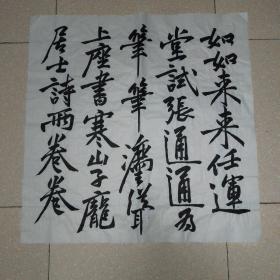 如如来来任運
堂試張通通为
筆筆灋聳
上座書寒山子龐
居士詩兩卷卷